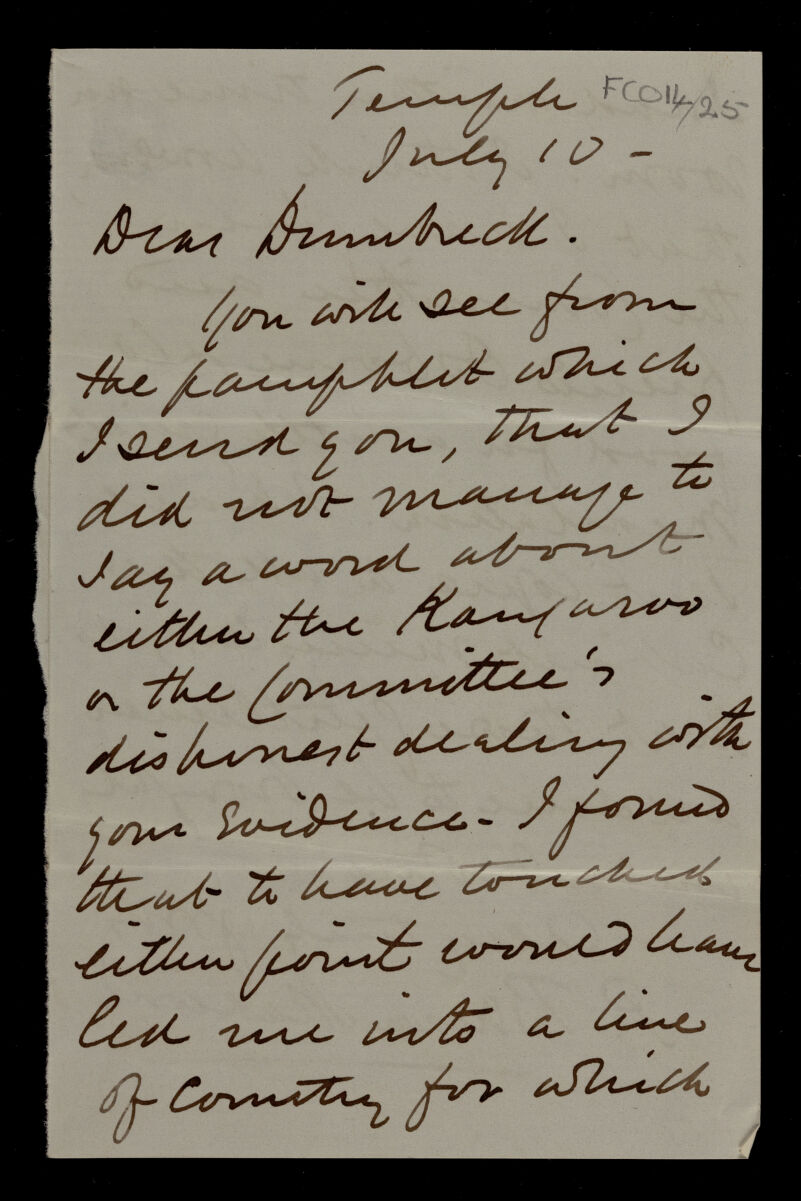 Temple FCO14/25
July 10 -
Dear Dumbreck.
You will see from
the pamphlet which
I send you, that I
did not manage to
say a word about
either the Kangaroo
or the Committee's
dishonest dealing with
your Evidence - I found
that to have touched
either point would have
led me into a line
of Country for which